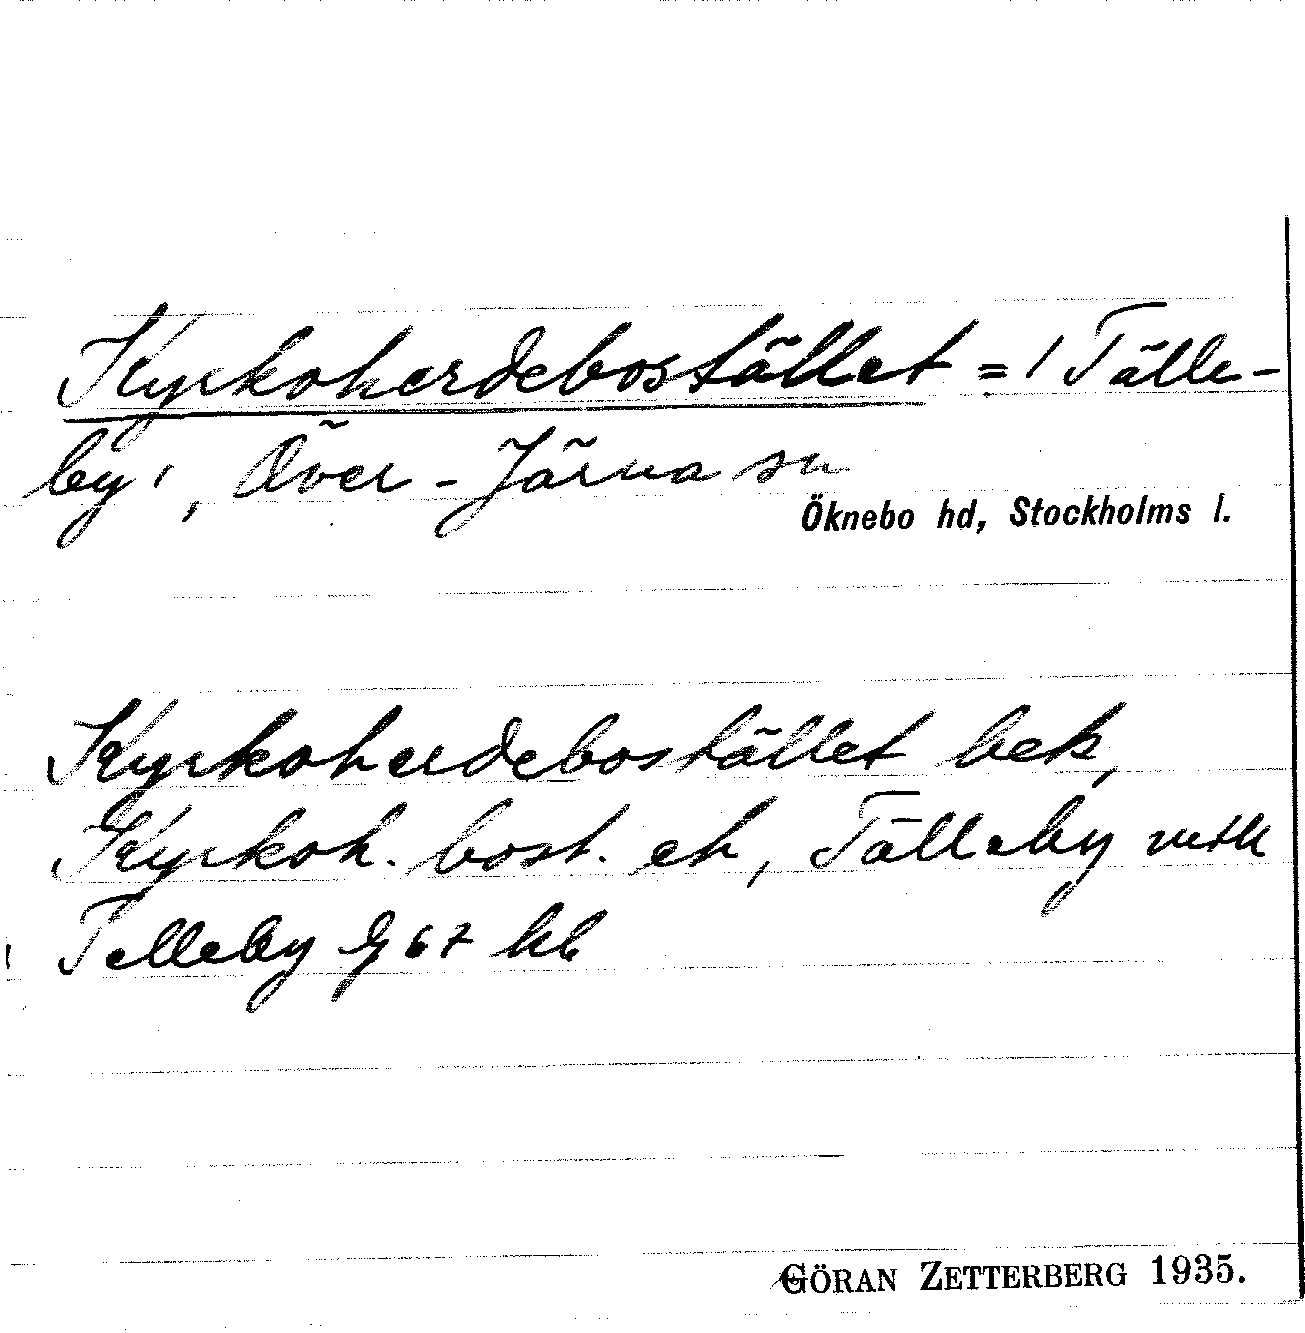 Kyrkoherdebostället = / Tälle-
by/, Över-Järna sn
Öknebo hd, Stockholms l.
Kyrkoherdebostället bek,
Kyrkoh. bost. ek, Tälleby
Telleby 67 kb
GÖRAN ZETTERBERG 1935.